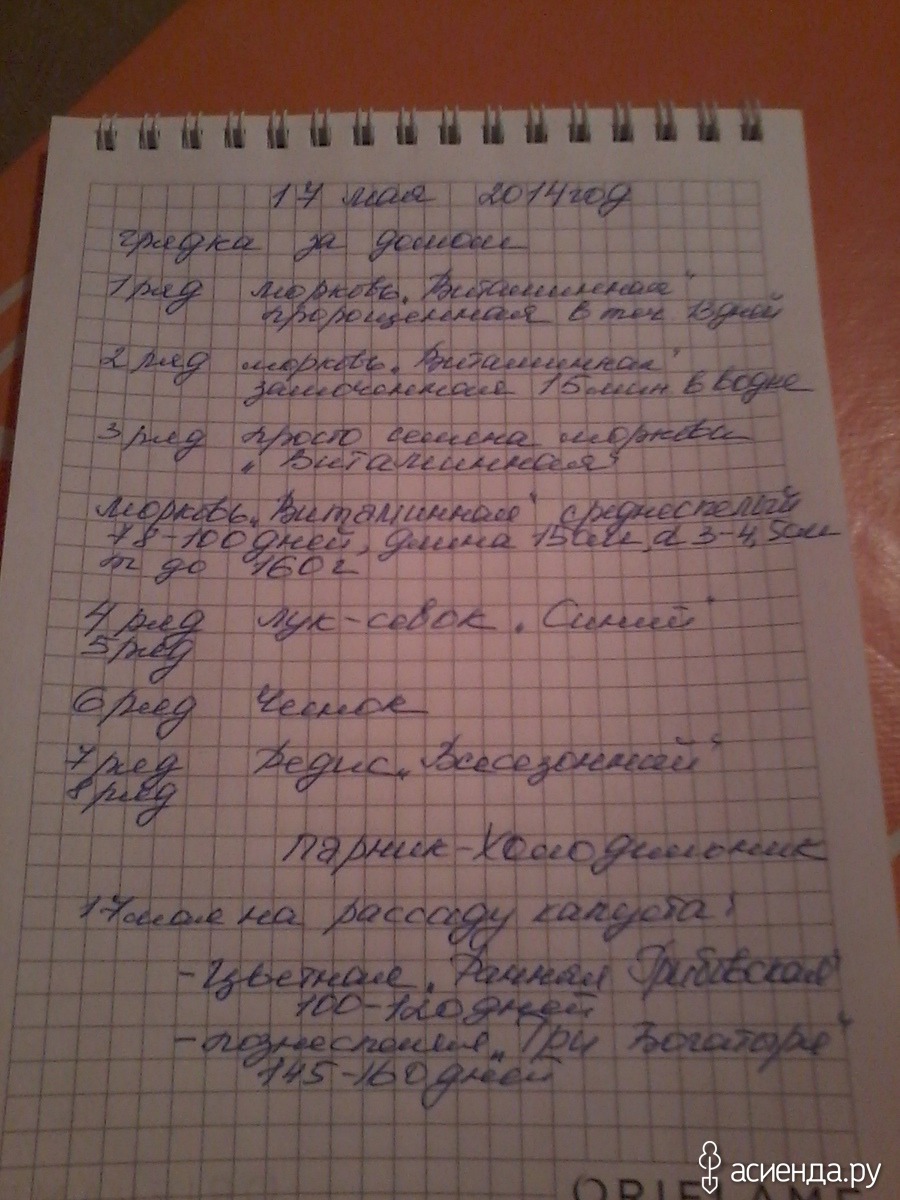 17 мая 2014год
грядка за домом
1 ряд морковь „Витаминная"
пророщенная в теч 13 дней
2 ряд морковь „Витаминная"
замоченная 15 мин в водне
3 ряд просто семена моркови
„Витаминная"
Морковь „Витаминная" среднеспелый
78-100 дней, длина 15см, d 3-4,5см
m до 160 г
4 ряд лук-севок „Синий"
5 ряд
6 ряд Чеснок
7 ряд Редис „Всесезонный"
8 ряд
парник-холодильник
17 мая на рассаду капуста:
- Цветная „Ранняя Грибовская"
100-120 дней
- позднеспелая „Три Богатыря"
145-160 дней
асиенда.ру